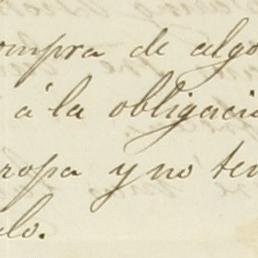 ompra de algo
á la obligació
ropa y no ten
lo.